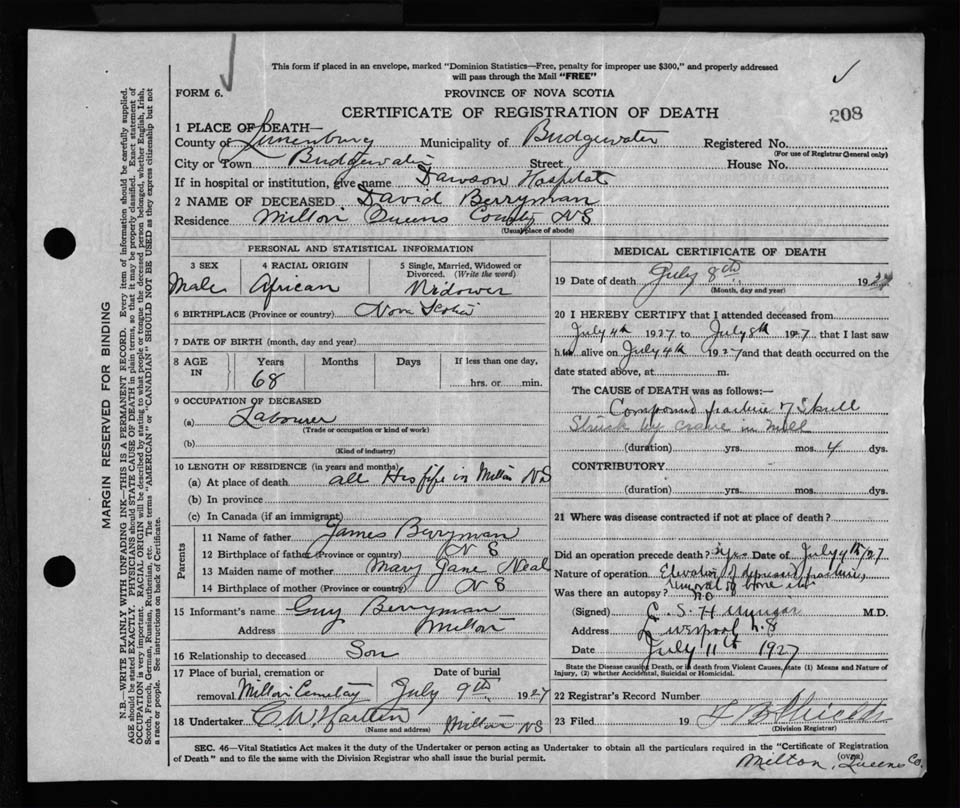 This form if placed in an envelope, marked "Dominion Statistics—Free, penalty for improper use $300," and properly addressed
will pass through the Mail "FREE"
FORM 6.
PROVINCE OF NOVA SCOTIA
CERTIFICATE OF REGISTRATION OF DEATH
208
1 PLACE OF DEATH—
County of Lunenburg Municipality of Bridgewater Registered No.
(For use of Registrar General only)
City or Town Bridgewater Street House No.
If in hospital or institution, give name Dawson Hospital
2 NAME OF DECEASED David Berryman
Residence Milton Queens County NS
(Usual place of abode)
PERSONAL AND STATISTICAL INFORMATION
3 SEX 4 RACIAL ORIGIN 5 Single, Married, Widowed or Divorced. (Write the word)
Male African Widower
6 BIRTHPLACE (Province or country) Nova Scotia
7 DATE OF BIRTH (month, day and year)
8 AGE IN Years Months Days If less than one day,
68 hrs. or min.
9 OCCUPATION OF DECEASED
(a) Labourer
(Trade or occupation or kind of work)
(b)
(Kind of industry)
10 LENGTH OF RESIDENCE (in years and months)
(a) At place of death all His life in Milton NS
(b) In province
(c) In Canada (if an immigrant)
Parents
11 Name of father James Berryman
12 Birthplace of father (Province or country) N S
13 Maiden name of mother Mary Jane Neal
14 Birthplace of mother (Province or country) N S
15 Informant's name Guy Berryman
Address Milton
16 Relationship to deceased Son
17 Place of burial, cremation or removal Date of burial
Milton Cemetary July 9th 1927
18 Undertaker Milton NS
(Name and address)
MEDICAL CERTIFICATE OF DEATH
19 Date of death July 8th 1927
(Month, day and year)
20 I HEREBY CERTIFY that I attended deceased from
July 4th 1927 to July 8th 1927 that I last saw
h im alive on July 4th 1927 and that death occurred on the
date stated above, at m.
The CAUSE of DEATH was as follows:—
Compound fracture of Skull
Struck by crane in mill
(duration) yrs. mos. 4 dys.
CONTRIBUTORY
(duration) yrs. mos. dys.
21 Where was disease contracted if not at place of death?
Did an operation precede death? yes Date of July 4th/27
Nature of operation Elevation of depressed fracture,
removal of bone
Was there an autopsy? no
(Signed) C. S. M.D.
Address Liverpool N.S
Date July 11th 1927
State the Disease causing Death, or in death from Violent Causes, state (1) Means and Nature of
Injury, (2) whether Accidental, Suicidal or Homicidal.
22 Registrar's Record Number
23 Filed 19
(Division Registrar)
SEC. 46—Vital Statistics Act makes it the duty of the Undertaker or person acting as Undertaker to obtain all the particulars required in the "Certificate of Registration
of Death" and to file the same with the Division Registrar who shall issue the burial permit.
(OVER)
Milton, Queens Co.
MARGIN RESERVED FOR BINDING
N.B.—WRITE PLAINLY WITH UNFADING INK—THIS IS A PERMANENT RECORD. Every item of information should be carefully supplied.
AGE should be stated EXACTLY. PHYSICIANS should STATE CAUSE OF DEATH in plain terms, so that it may be properly classified. Exact statement of
OCCUPATION is very important. RACIAL ORIGIN will be described by stating to what people or tongue the deceased person belonged, whether English, Irish,
Scotch, French, German, Russian, Ruthenian, etc. The terms "AMERICAN" or "CANADIAN" SHOULD NOT BE USED as they express citizenship but not
a race or people. See instructions on back of Certificate.